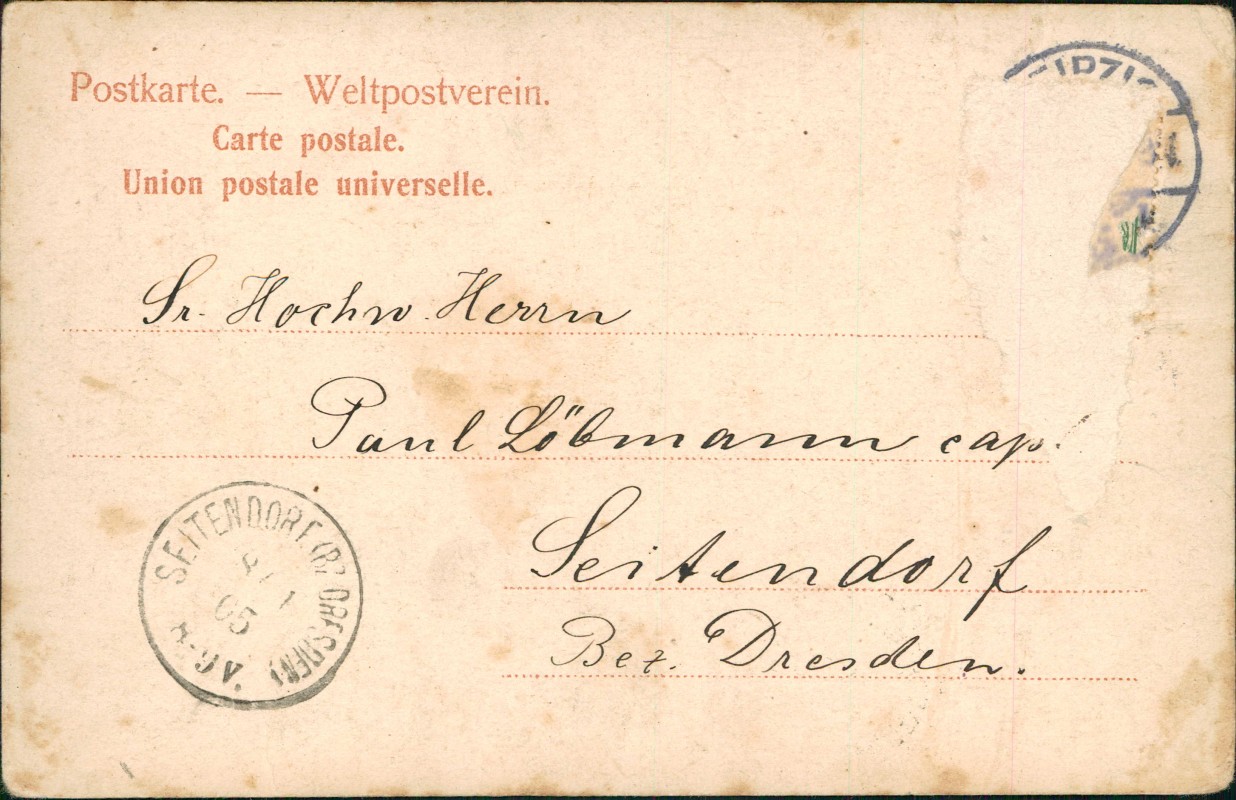 Postkarte. — Weltpostverein.
Carte postale.
Union postale universelle.
Sr. Hochw. Herrn
Paul Löbmann cap.
Seitendorf
Bez. Dresden.
SEITENDORF (BZ. DRESDEN)
05